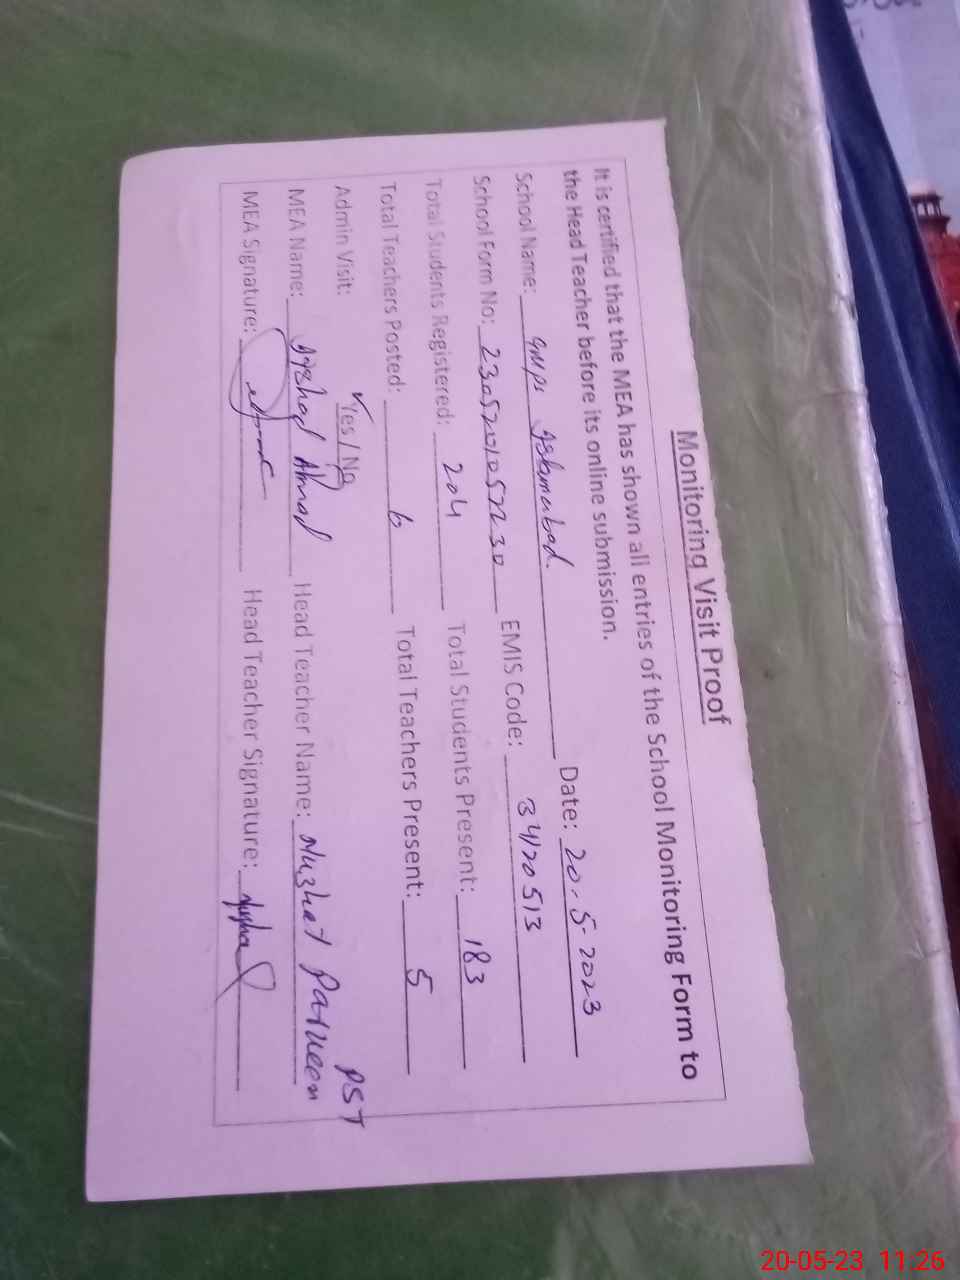 Monitoring Visit Proof
It is certified that the MEA has shown all entries of the School Monitoring Form to
the Head Teacher before its online submission.
School Name: GMPS Date: 20-5-2023
School Form No: 2305201052230 EMIS Code: 34120513
Total Students Registered: 204 Total Students Present: 183
Total Teachers Posted: 6 Total Teachers Present: 5
Admin Visit: Yes / No PST
MEA Name: Ahmad Head Teacher Name: Nuzhat Parveen
MEA Signature: Head Teacher Signature:
20-05-23 11:26